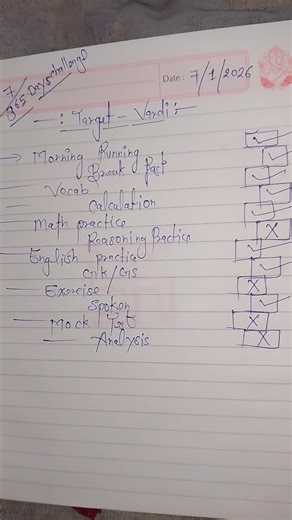 7/365 Days challenge
Date : 7/1/2026
: Target - Vardi :-
→ Morning Running ✓
Break fast ✓
Vocab ✓
Calculation ✓
Math practice ✓
Reasoning Practice X
English practice ✓
GK/GS ✓
Exercise X
Spoken ✓
Mock Test X
Analysis X